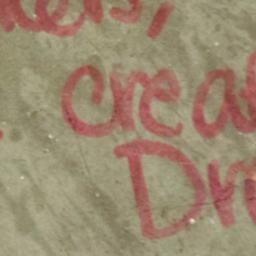 kers,
crea
Dr